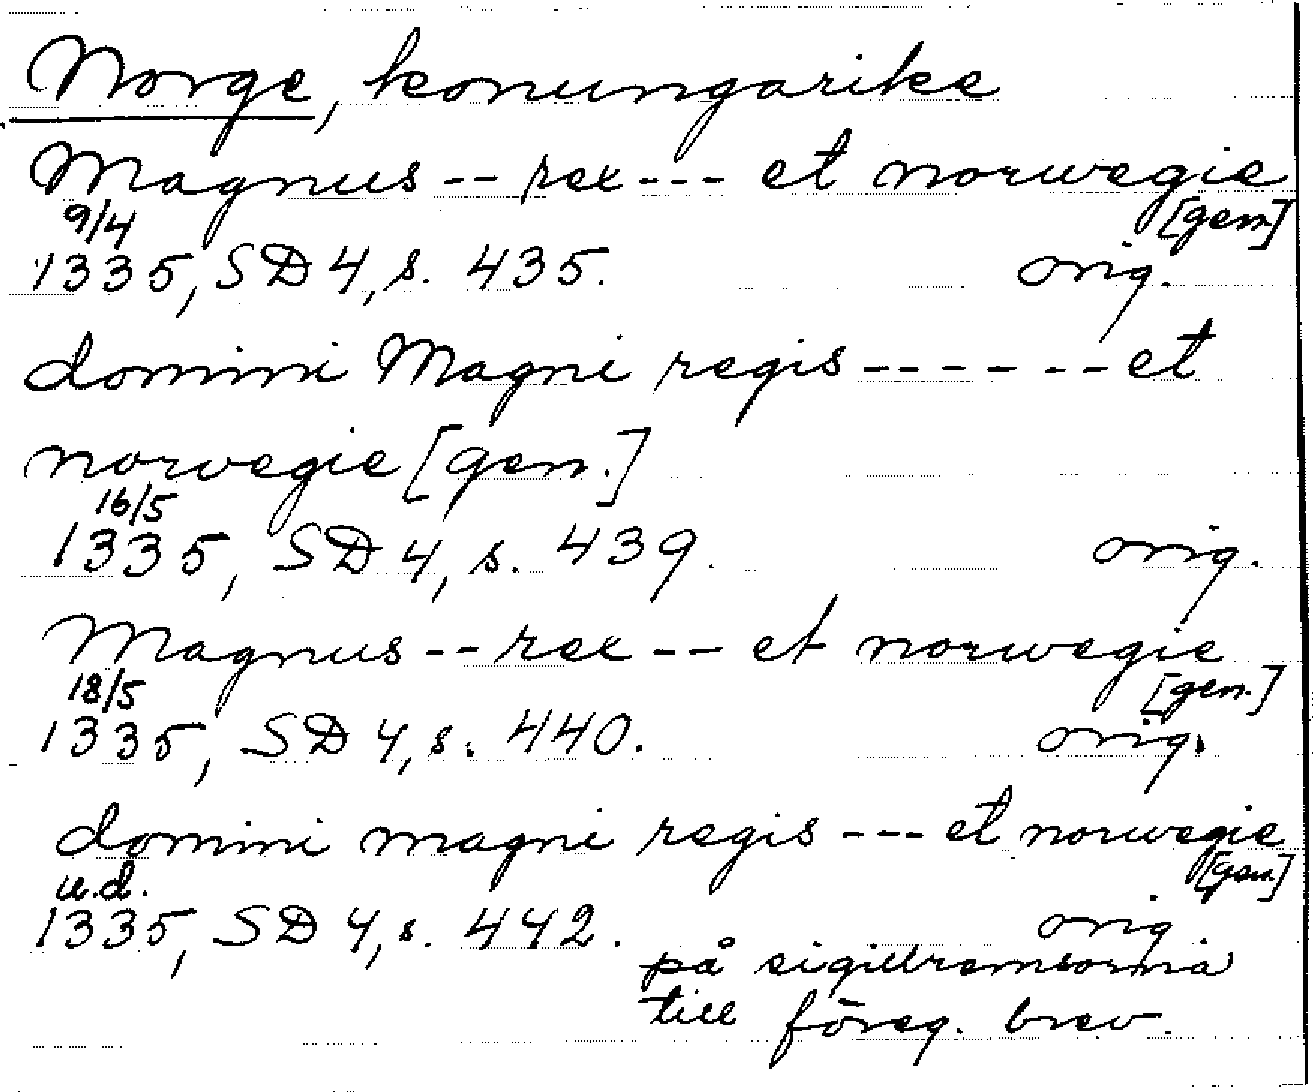 Norge, konungarike
Magnus -- rex --- et norwegie
9/4 [gen.]
1335, SD 4, s. 435. orig.
domini Magni regis ------ et
norwegie [gen.]
16/5
1335, SD 4, s. 439. orig.
Magnus -- rex -- et norwegie
18/5 [gen.]
1335, SD 4, s. 440. orig.
domini magni regis --- et norwegie
u.d. [gen.]
1335, SD 4, s. 442. orig
på sigillremsorna
till föreg. brev.